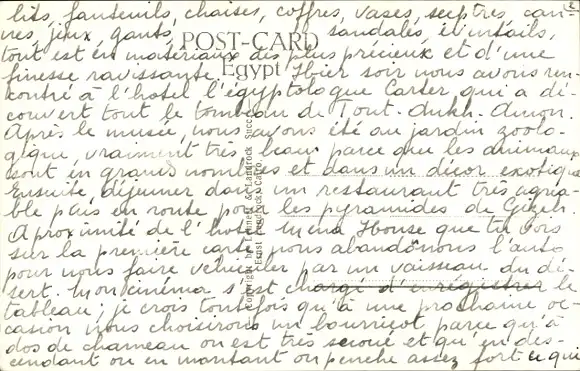 lits, fauteuils, chaises, coffres, vases, sceptres, can-
nes, jeux, gants, sandales, éventails,
POST-CARD
tout est en matériaux des plus précieux et d'une
Egypt
finesse ravissante. Hier soir nous avons ren-
contré à l'hotel l'égyptologue Carter qui a dé-
couvert tout le tombeau de Tout-Ankh-Amon.
Après le musée, nous avons été au jardin zoolo-
gique, vraiment très beau parce que les animaux
sont en grand nombres et dans un décor exotique
Ensuite, déjeuner dans un restaurant très agréa-
ble puis en route pour les pyramides de Gizeh.
A proximité de l'hotel Mena House que tu vois
sur la première carte, nous abandonons l'auto
pour nous faire véhiculer par un vaisseau du dé-
sert. Mon cinéma s'est chargé d'enrégistrer le
tableau; je crois toutefois qu'à une prochaine oc-
casion nous choisirons un bourricot parce qu'à
dos de chameau on est très secoué et qu'en des-
cendant ou en montant on penche assez fort ce qui
Copyright by Lehnert & Landrock Succ.
Ernst Landrock, Cairo.
2